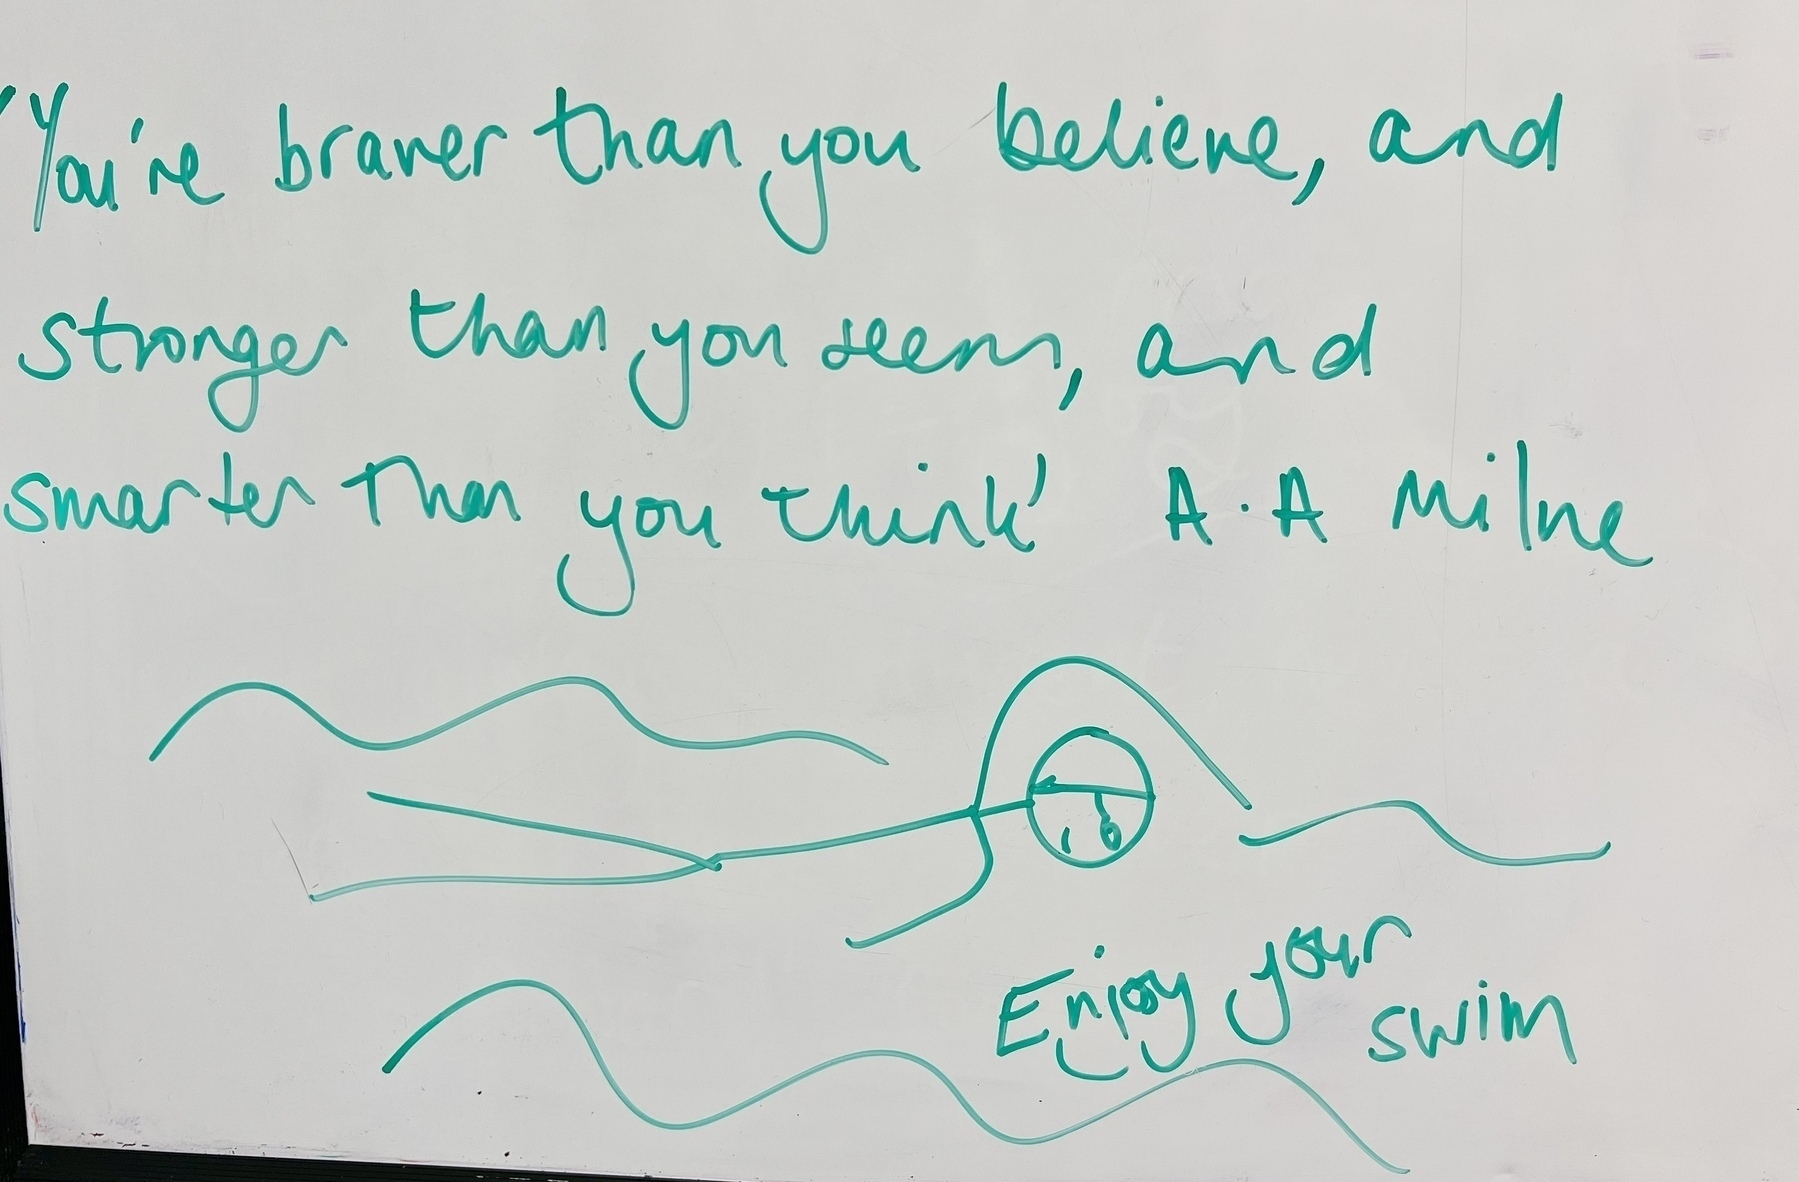 'You're braver than you believe, and
stronger than you seem, and
smarter than you think' A.A Milne
Enjoy your
swim